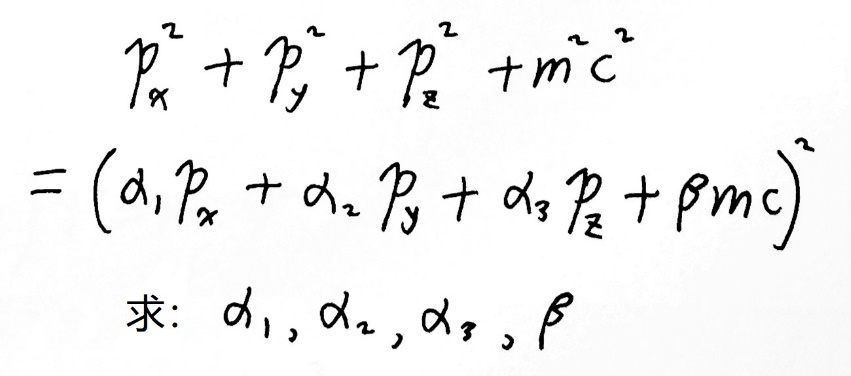 p_x² + p_y² + p_z² + m²c²
= (α₁p_x + α₂p_y + α₃p_z + βmc)²
求: α₁, α₂, α₃, β